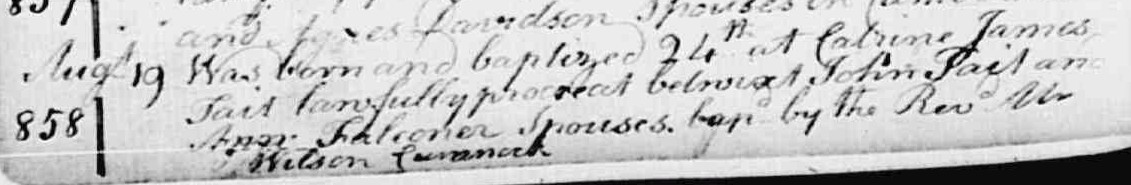 837
and Agnes Davidson Spouses in
Augt 19 Was born and baptized 24th at Catrine James
Tait lawfully procreat betwixt John Tait and
858 Ann Falconer Spouses. bap.d by the Revd Mr
Wilson